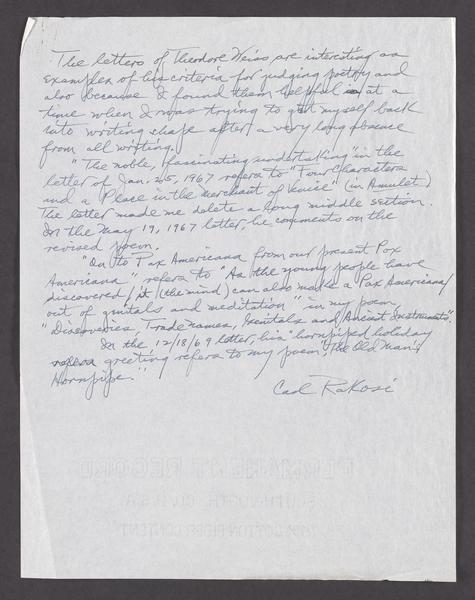 The letters of Theodore Weiss are interesting as
examples of his criteria for judging poetry and
also because I found them helpful at a
time when I was trying to get myself back
into writing shape after a very long absence
from all writing.
"The noble, fascinating undertaking" in the
letter of Jan. 25, 1967 refers to "Four Characters
and a Place in the Merchant of Venice" (in Amulet)
The letter made me delete a long middle section.
In the May 19, 1967 letter, he comments on the
revised poem.
"On to Pax Americana from our present Pox
Americana" refers to "As the young people have
discovered / it (the mind) can also make a Pax Americana /
out of genitals and meditation" in my poem,
"Discoveries, Trade Names, Genitals and Ancient Instruments".
In the 12/18/69 letter, his "hornpiped holiday
greeting refers to my poem, "The Old Man's
Hornpipe."
Carl Rakosi
PERMANENT RECORD
SOUTHWORTH CO. U.S.A.
COTTON FIBER CONTENT